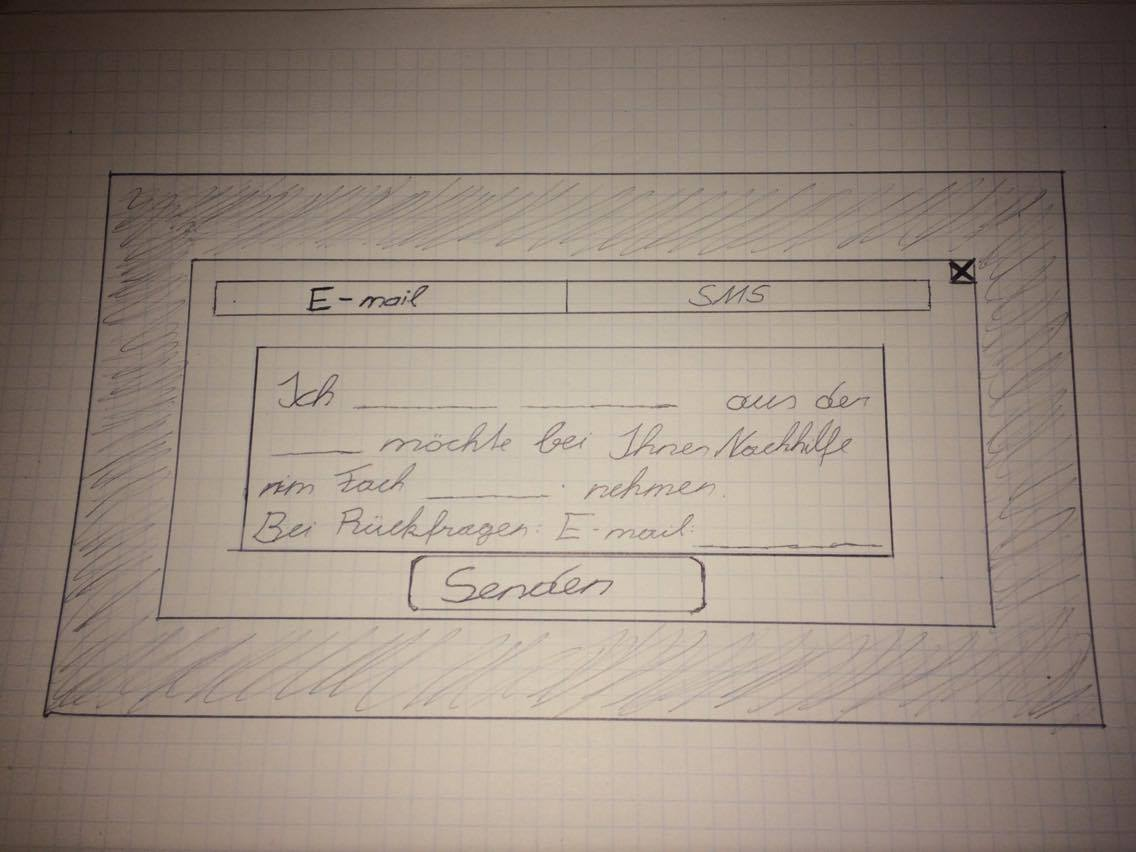 E-mail
SMS
Ich ______ ______ aus der
____ möchte bei Ihnen Nachhilfe
im Fach ______ nehmen.
Bei Rückfragen: E-mail: ________
Senden